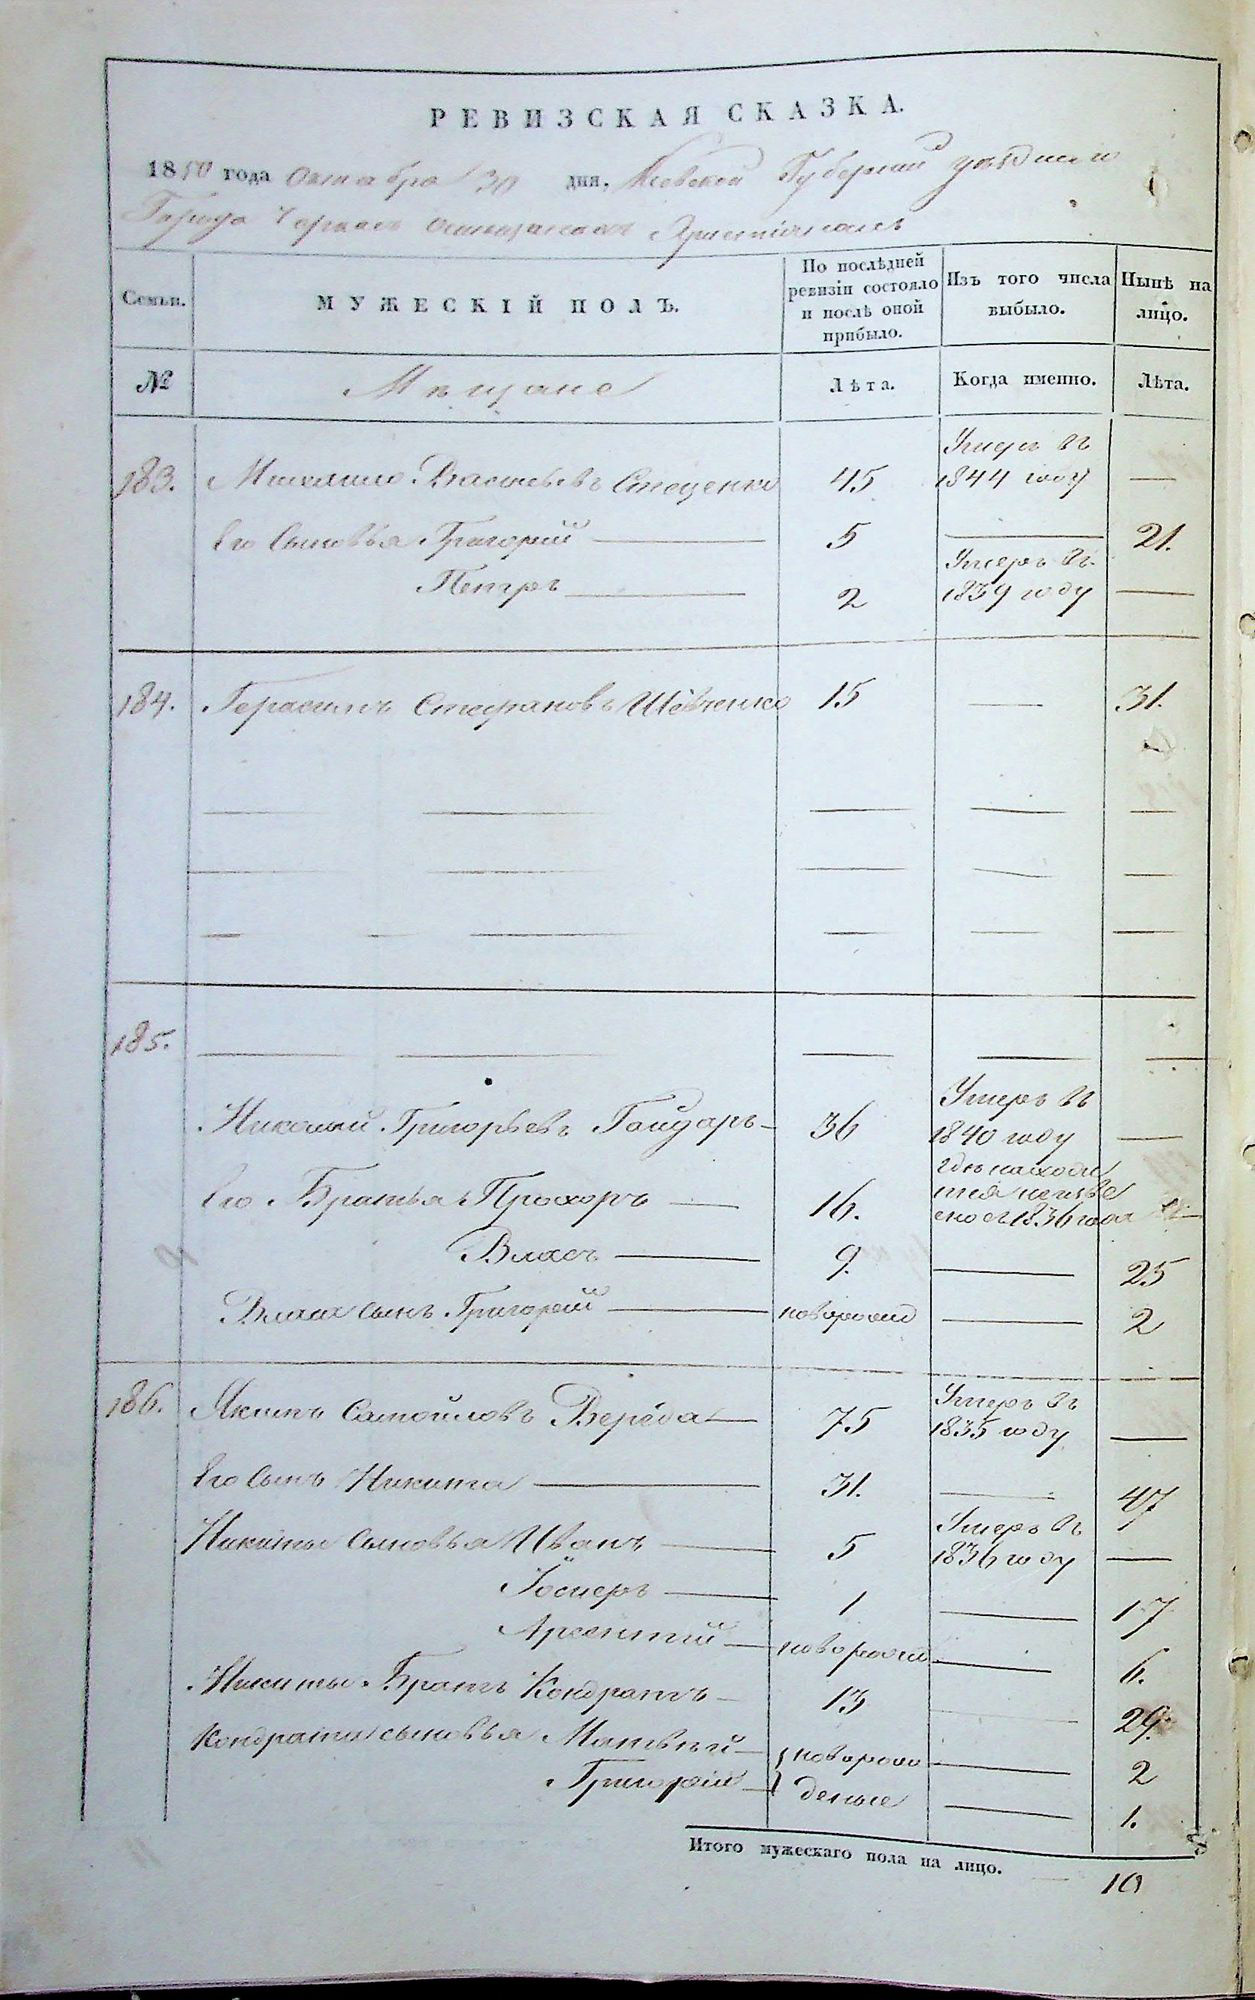 РЕВИЗСКАЯ СКАЗКА.
1850 года Октября 30 дня, Киевской Губернии уезднаго
Города Черкас Христіянахъ
Семьи.
МУЖЕСКІЙ ПОЛЪ.
По послѣдней ревизіи состояло и послѣ оной прибыло.
Изъ того числа выбыло.
Нынѣ на лицо.
№
Мѣщане
Лѣта.
Когда именно.
Лѣта.
183. Михайло Васильевъ Стеценко 45 Умеръ въ 1844 году —
Его сыновья Григорій — 5 — 21.
Петръ — 2 Умеръ въ 1839 году —
184. Герасимъ Стефановъ Шевченко 15 — 31.
185.
Николай Григорьевъ Гончаръ — 36 Умеръ въ 1840 году —
Его Братья Прохоръ — 16. где находится неизвестно съ 1836 года
Власъ — 9. — 25
Власа сынъ Григорій — новорожд — 2
186. Якимъ Самойловъ Вереда — 75 Умеръ въ 1835 году —
Его сынъ Никита — 31. — 47
Никиты сыновья Иванъ — 5 Умеръ въ 1836 году —
Іосифъ — 1 — 17
Арсентій — новорожд — 6.
Никиты Братъ Кондратъ — 13 — 29.
Кондрата сыновья Матвѣй — новорож — 2
Григорій — денные — 1.
Итого мужескаго пола на лицо. — 10